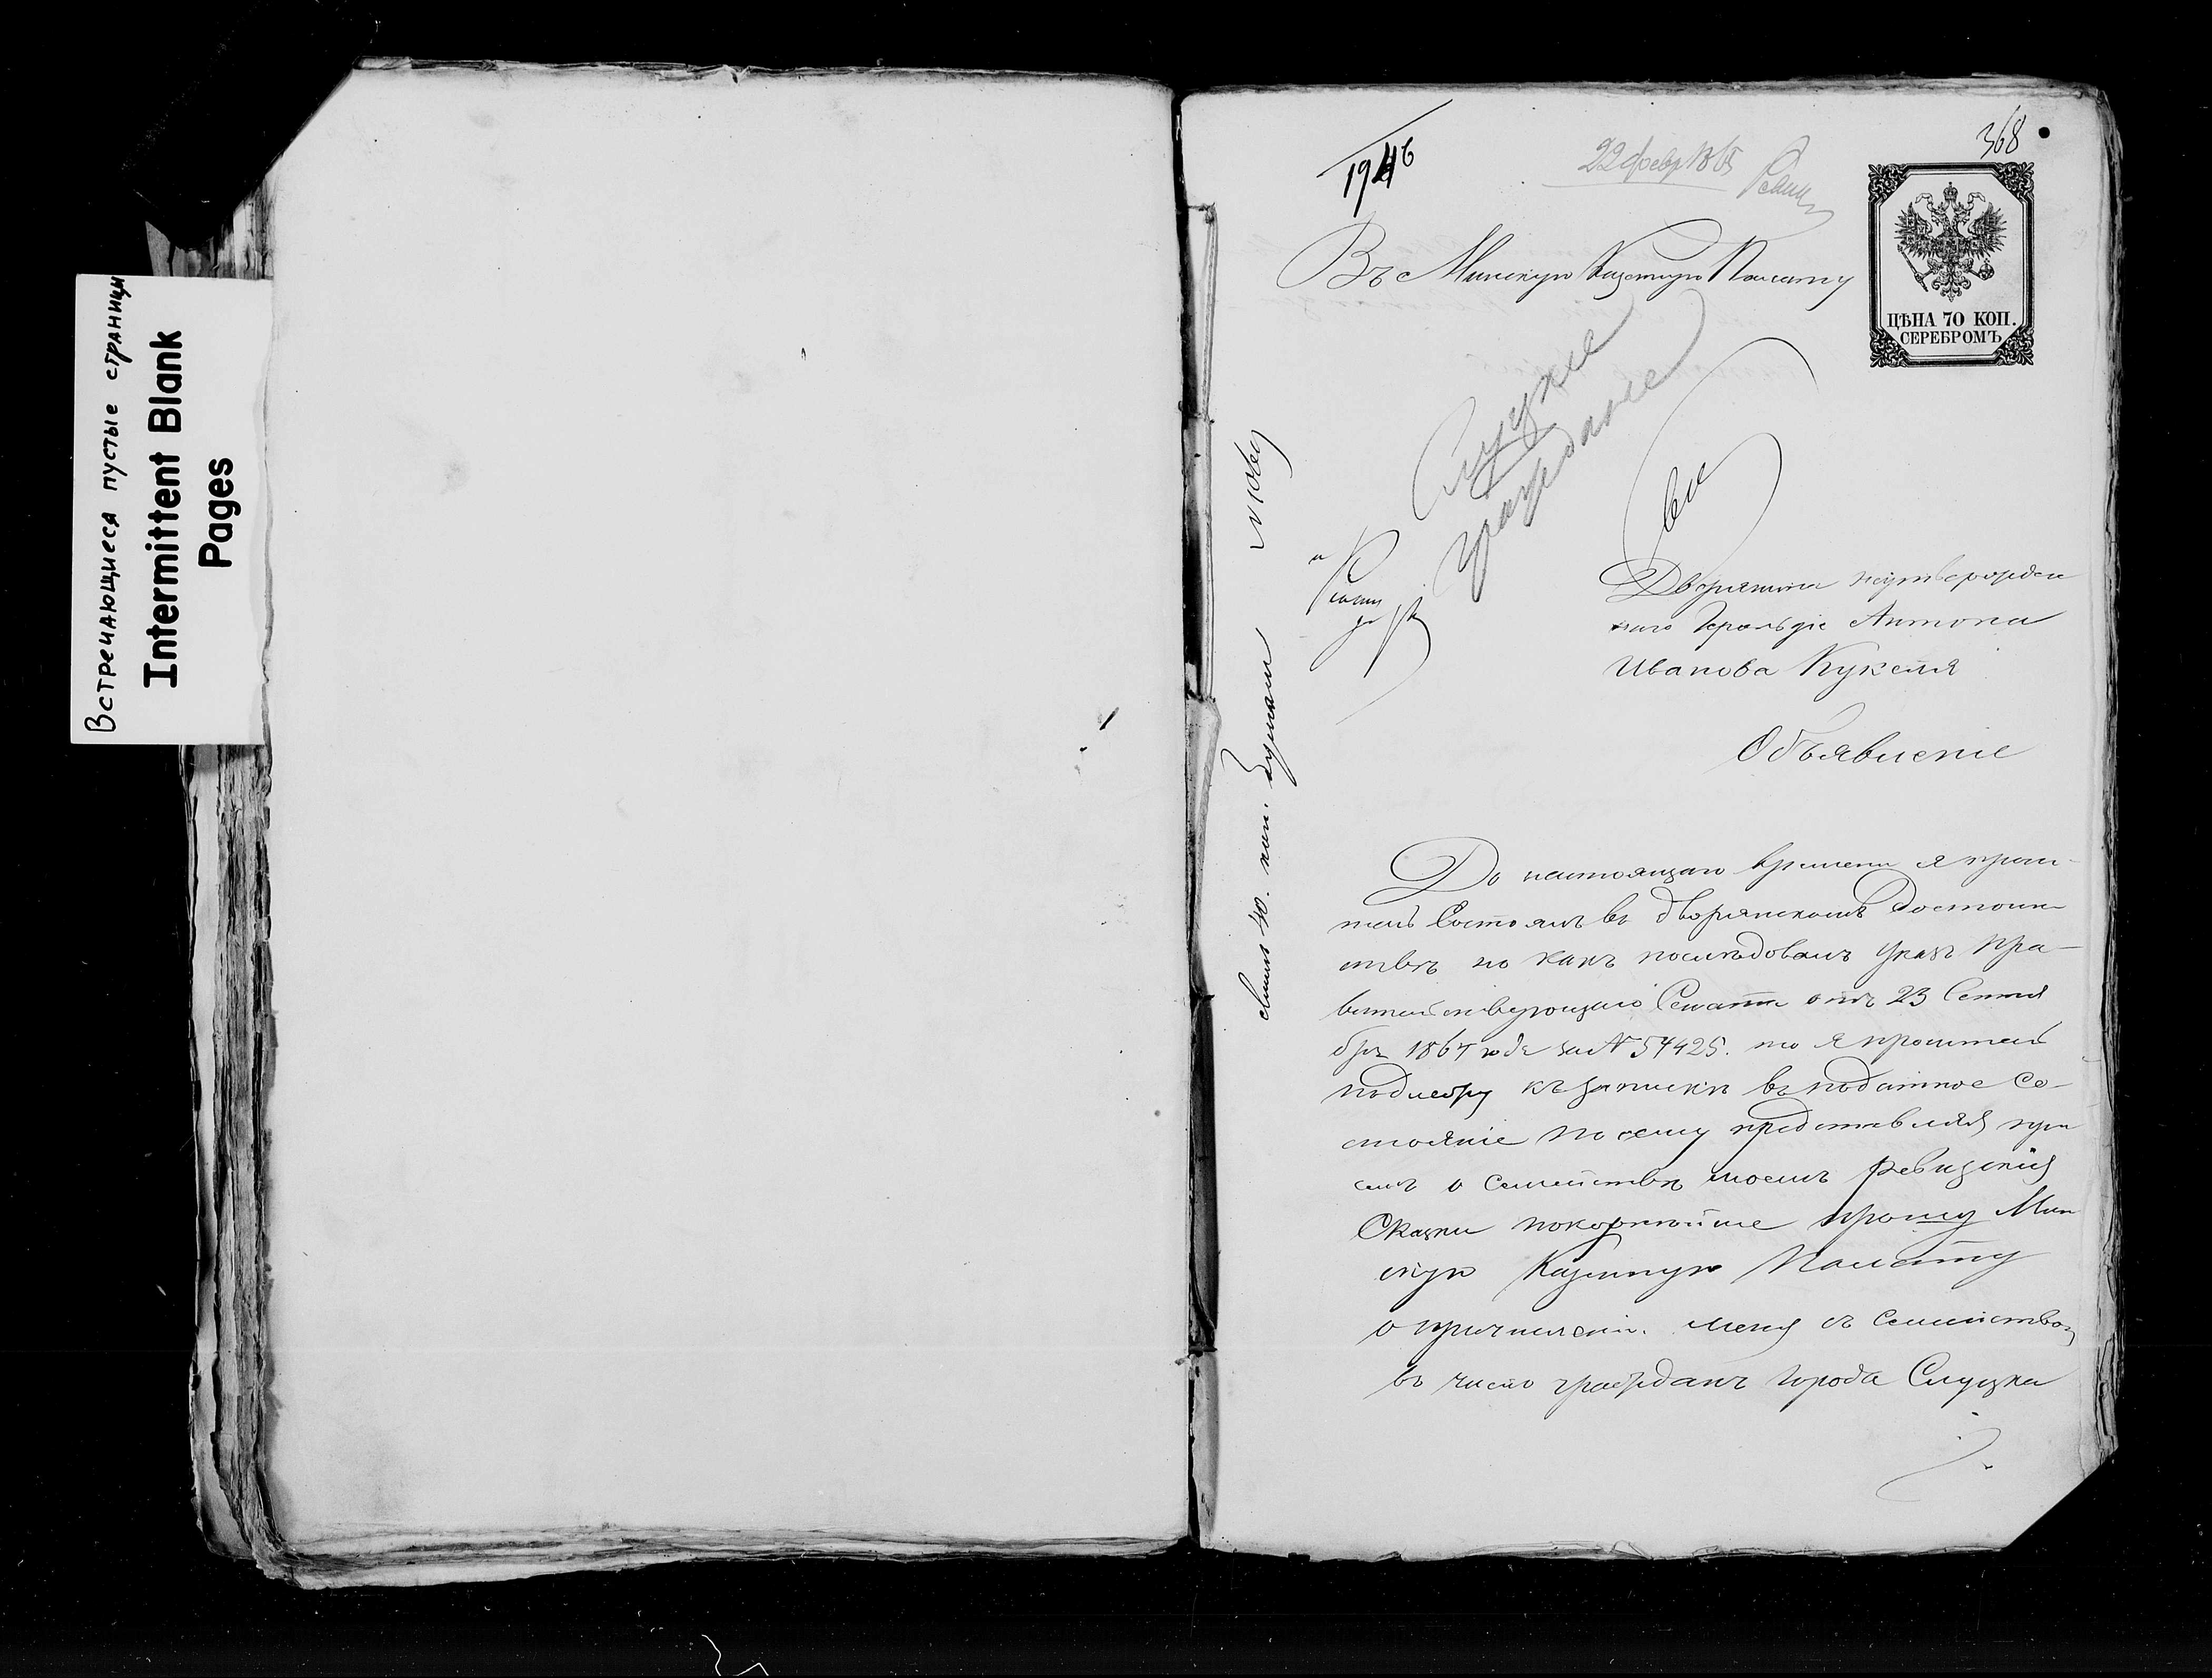 Встречающиеся пустые страницы
Intermittent Blank
Pages
368
1946
22 февр 1865
Въ Минскую Казенную Палату
ЦѢНА 70 КОП.
СЕРЕБРОМЪ
Слуцкіе
граждане
Дворянина неутвержден
наго Герольдіе Антона
Иванова Кукеля
Объявленіе
До настоящаго времени я проси-
тель состоялъ въ дворянскомъ достоин-
ствѣ но какъ послѣдовалъ указъ Пра-
вительствующаго Сената отъ 23 Сентя
бря 1864 года за № 57425. то я проситель
подлежу къ запискѣ въ податное со-
стояніе по сему представляя при
семъ о семействѣ моемъ ревизскія
Сказки покорнѣйше прошу Мин
скую Казенную Палату
о причисленіи меня съ семействомъ
въ число гражданъ города Слуцка
листъ 40. коп.